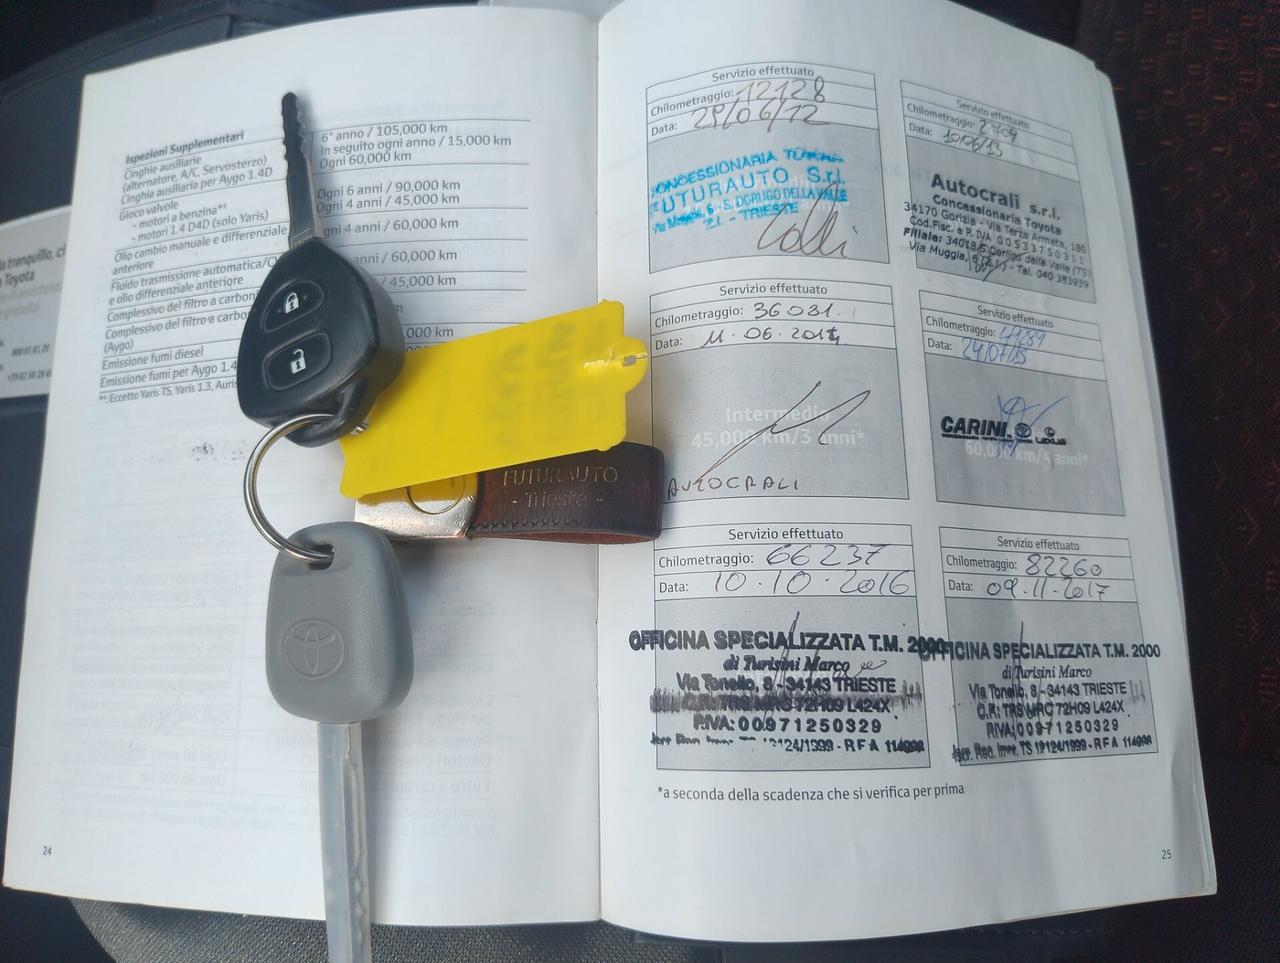 la tranquillo, ci
Toyota
Ispezioni Supplementari
Cinghie ausiliarie
(alternatore, A/C, Servosterzo)
6° anno / 105,000 km
In seguito ogni anno / 15,000 km
Cinghia ausiliaria per Aygo 1.4D
Ogni 60,000 km
Gioco valvole
- motori a benzina*¹
Ogni 6 anni / 90,000 km
- motori 1.4 D4D (solo Yaris)
Ogni 4 anni / 45,000 km
Olio cambio manuale e differenziale
anteriore
Ogni 4 anni / 60,000 km
Fluido trasmissione automatica/CV
e olio differenziale anteriore
anni / 60,000 km
Complessivo del filtro a carbon
45,000 km
Complessivo del filtro a carbo
(Aygo)
km
Emissione fumi diesel
,000 km
Emissione fumi per Aygo 1.4
*¹: Eccetto Yaris TS, Yaris 1.3, Auris
24
FUTURAUTO
- Trieste -
Servizio effettuato
Chilometraggio: 12128
Data: 29/06/12
CONCESSIONARIA
FUTURAUTO S.r.l.
S. DORLIGO DELLA VALLE
Z.I. - TRIESTE
Servizio effettuato
Chilometraggio:
Data: 10/06/13
Autocrali s.r.l.
Concessionaria Toyota
34170 Gorizia - Via Terza Armata, 180
Cod.Fisc. e P. IVA 00533750311
Filiale: 34018 S. Dorligo della Valle (TS)
Via Muggia, 6 (Z.I.) - Tel. 040 383939
Servizio effettuato
Chilometraggio: 36031.
Data: 11.06.2014
Intermedio
45,000 km/3 anni*
AUTOCRALI
Servizio effettuato
Chilometraggio:
Data: 24/07/15
CARINI
LEXUS
60,000 km/4 anni*
Servizio effettuato
Chilometraggio: 66237
Data: 10.10.2016
OFFICINA SPECIALIZZATA T.M. 2000
di Turisini Marco
Via Tonello, 8 - 34143 TRIESTE
C.F.: TRS MRC 72H09 L424X
P.IVA: 00971250329
19124/1999 - R F A 114998
Servizio effettuato
Chilometraggio: 82260
Data: 09.11.2017
OFFICINA SPECIALIZZATA T.M. 2000
di Turisini Marco
Via Tonello, 8 - 34143 TRIESTE
C.F.: TRS MRC 72H09 L424X
P.IVA: 00971250329
Iscr. Reg. Impr. TS 19124/1999 - R F A 114998
*a seconda della scadenza che si verifica per prima
25